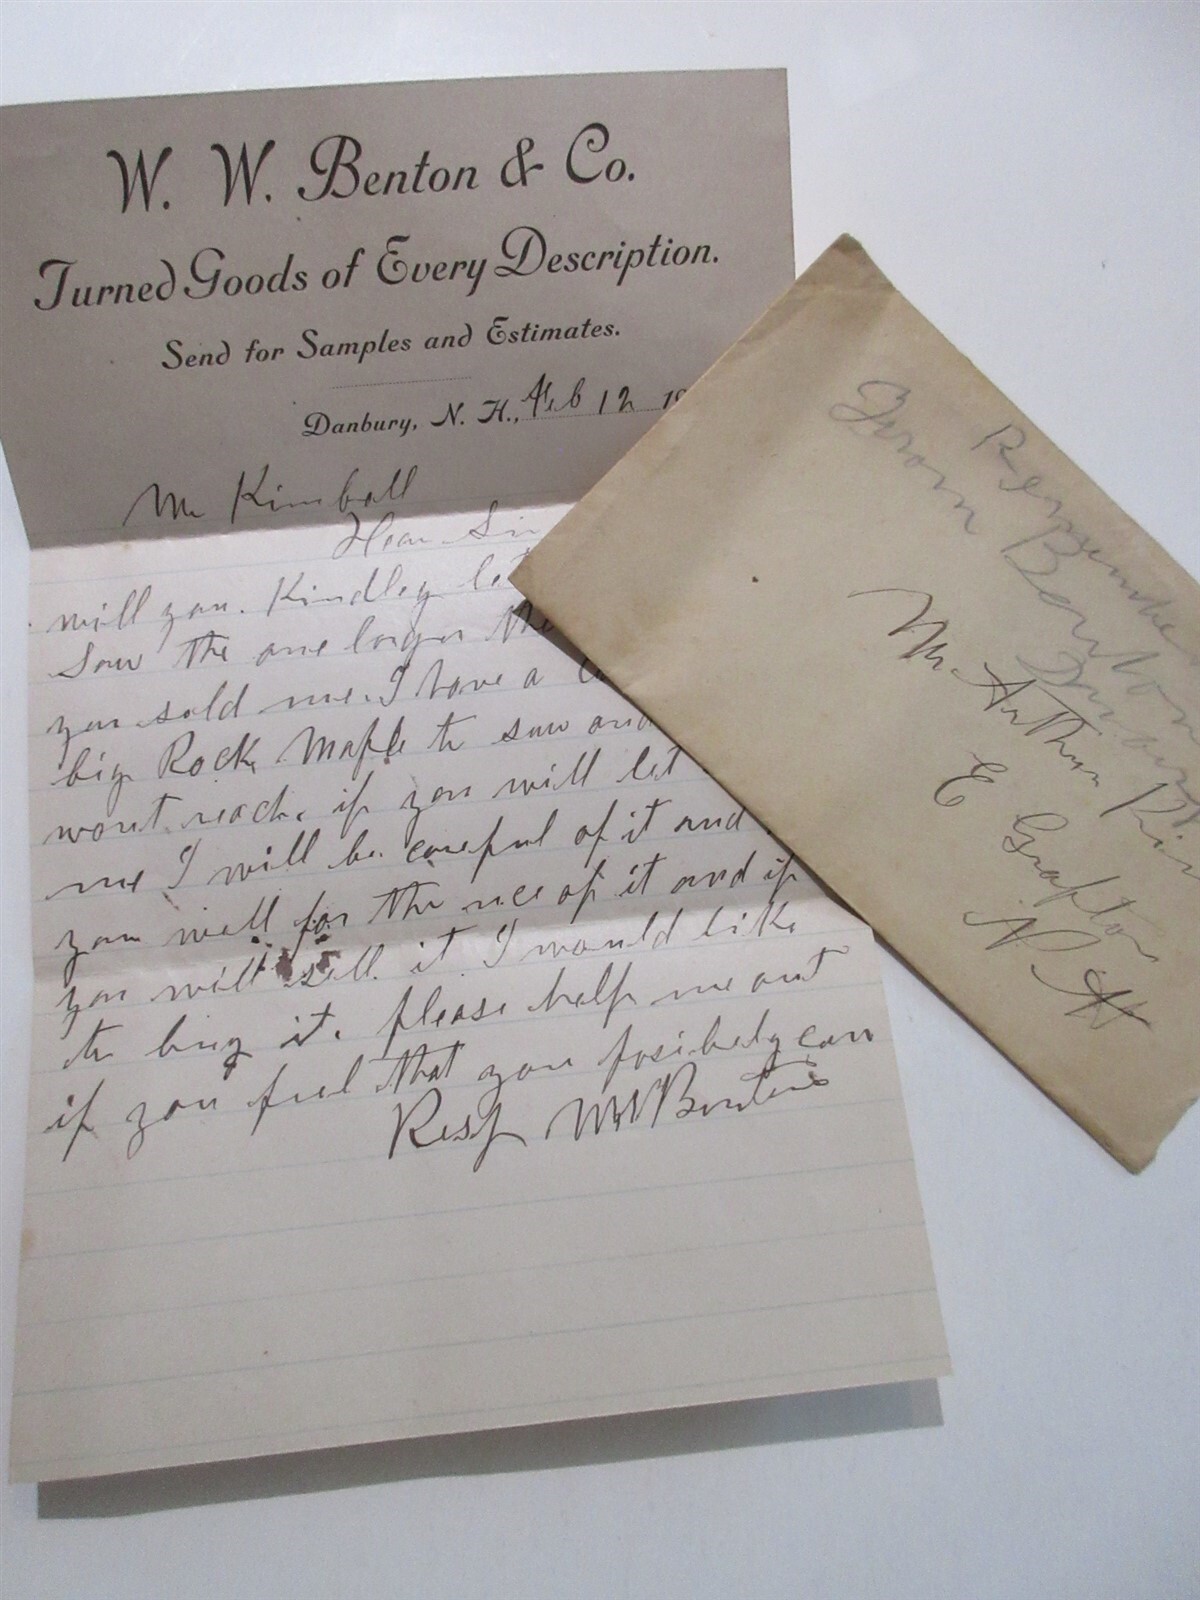 W. W. Benton & Co.
Turned Goods of Every Description.
Send for Samples and Estimates.
Danbury, N. H., Feb 12 19
Mr Kimball
Dear Sir
will you. Kindley let
saw the one longer the
you sold me. I have a
big Rock Maple to saw and
wont reach. if you will let
me I will be careful of it and
you well for the uce of it and if
you will sell it I would like
to buy it. please help me out
if you feel that you posibely can
Resp W W Benton
From Benton
Mr Arthur Kim
E Grafton
N H